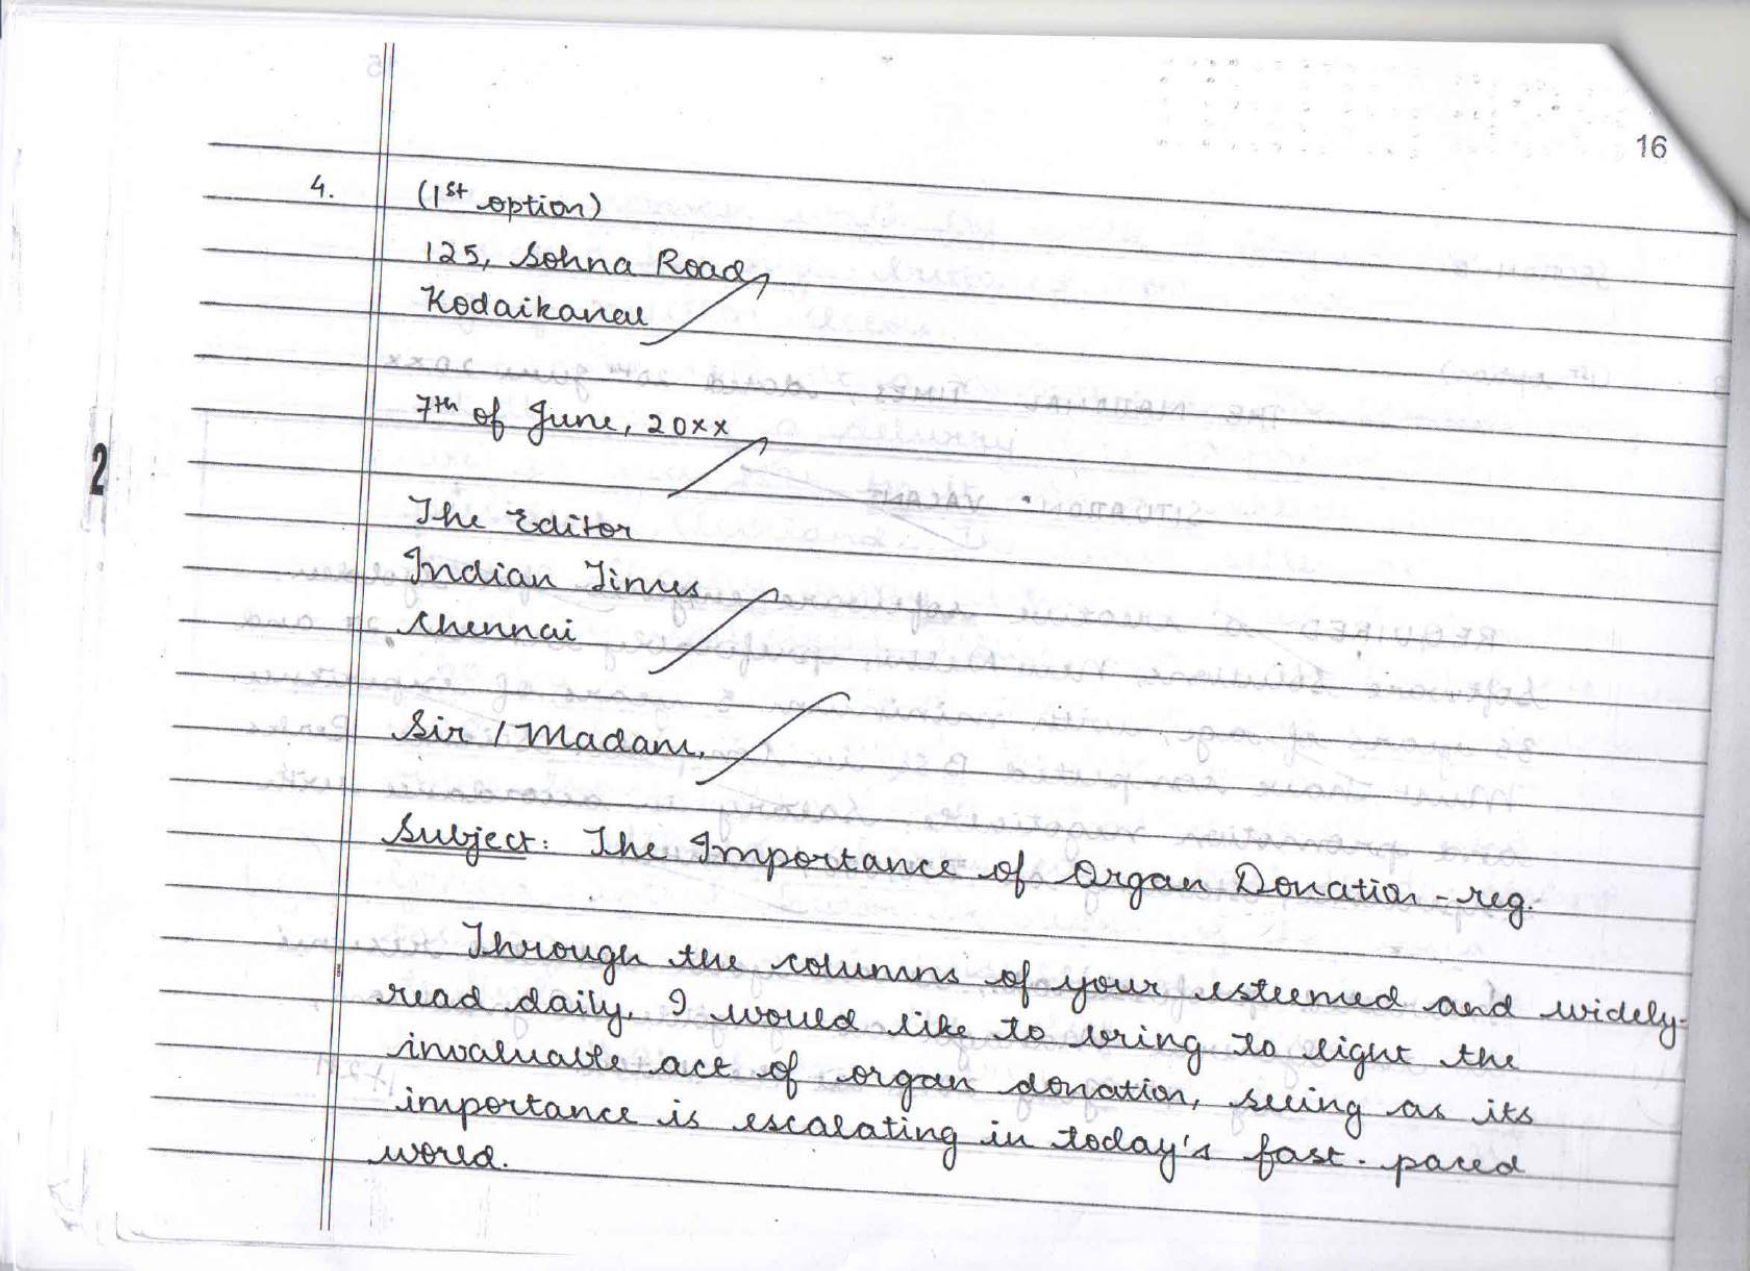 16
4. (1st option)
125, Sohna Road,
Kodaikanal
7th of June, 20xx
The Editor
Indian Times
Chennai
2
Sir / Madam,
Subject: The Importance of Organ Donation - reg.
Through the columns of your esteemed and widely-
read daily, I would like to bring to light the
invaluable act of organ donation, seeing as its
importance is escalating in today's fast-paced
world.